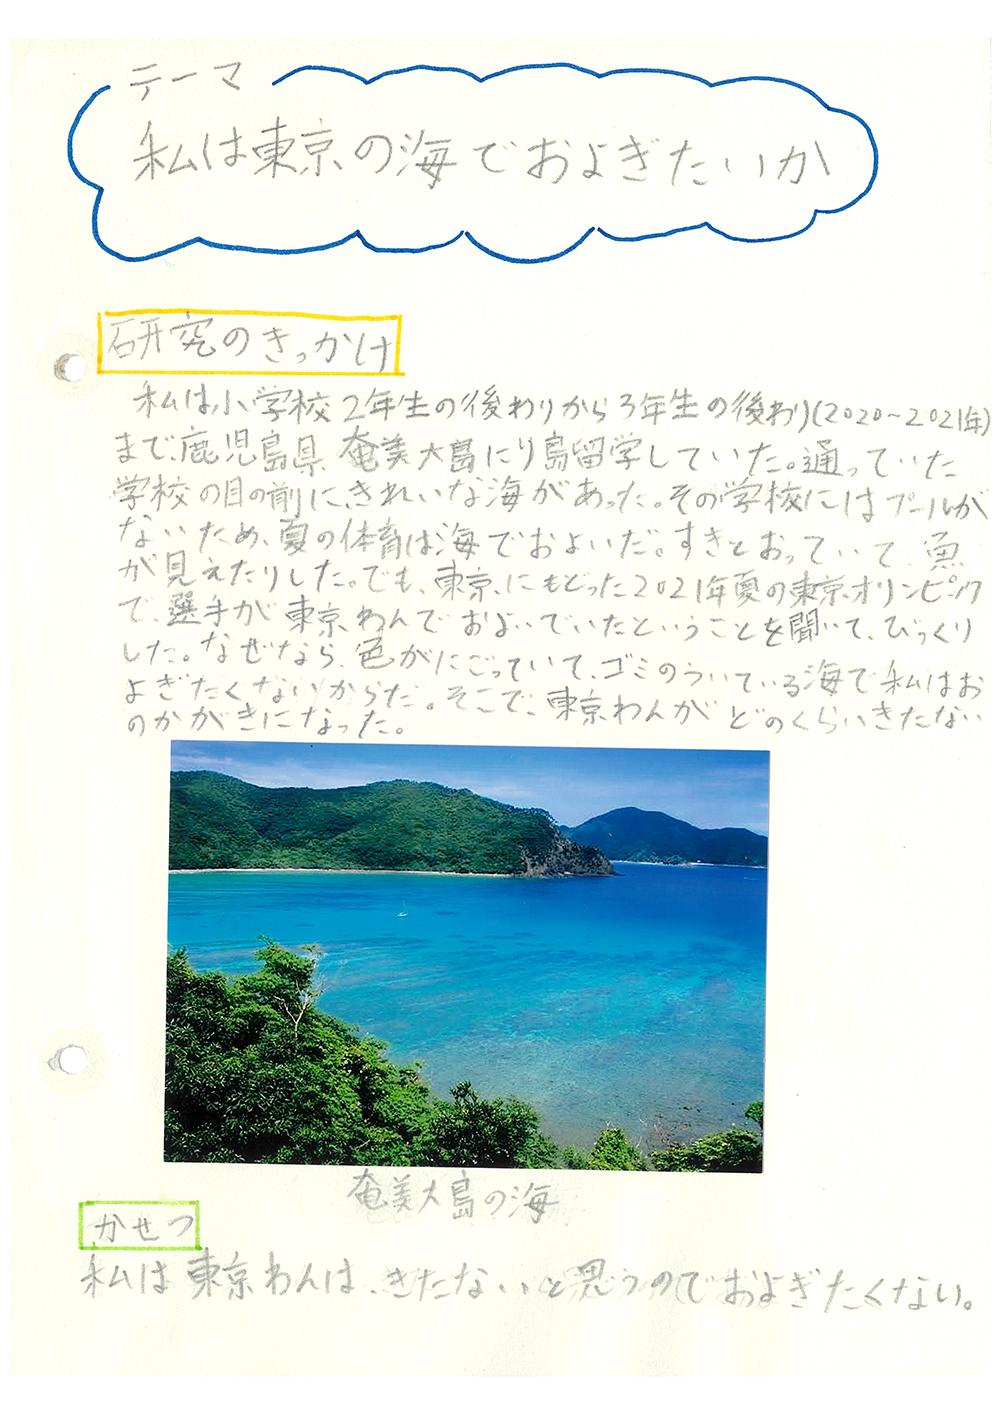 テーマ
私は東京の海でおよぎたいか
研究のきっかけ
私は小学校2年生の後わりから3年生の後わり(2020~2021年)
まで、鹿児島県奄美大島にり島留学していた。通っていた
学校の目の前にきれいな海があった。その学校にはプールが
ないため、夏の体育は海でおよいだ。すきとおっていて、魚
が見えたりした。でも、東京にもどった2021年夏の東京オリンピック
で、選手が東京わんでおよいでいたということを聞いて、びっくり
した。なぜなら、色がにごっていて、ゴミのういている海で私はお
よぎたくないからだ。そこで、東京わんがどのくらいきたない
のかがきになった。
奄美大島の海
かせつ
私は東京わんは、きたないと思うのでおよぎたくない。